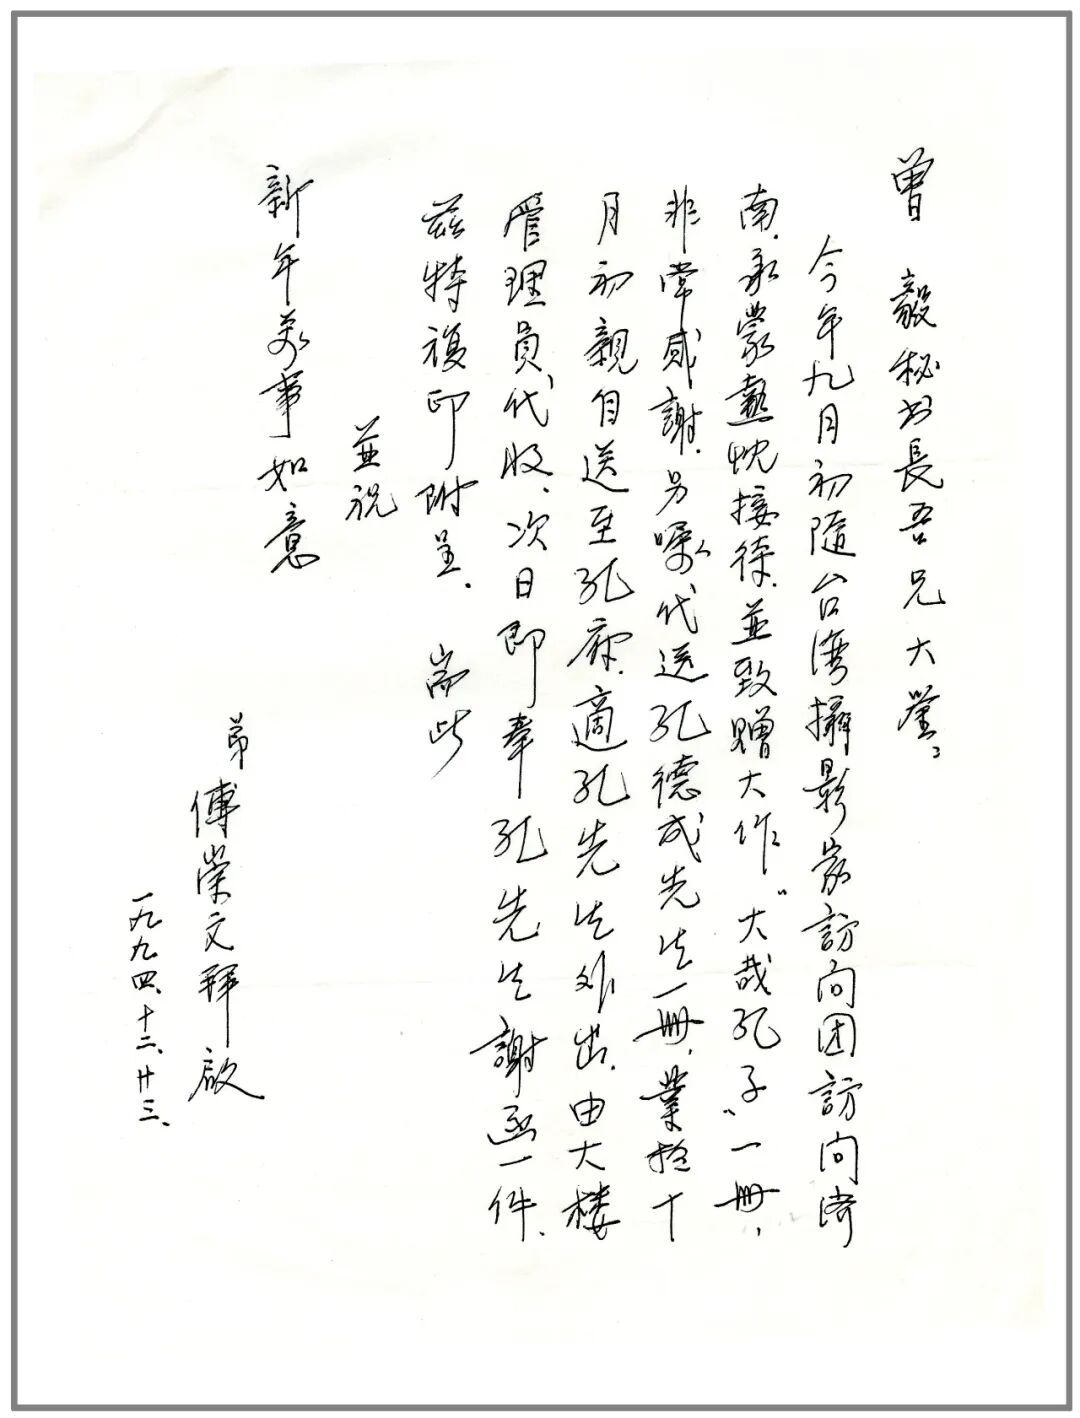 曾　毅秘书長吾兄大鑒：
今年九月初隨台湾攝影家訪问团訪问济
南，承蒙热忱接待，並致贈大作“大哉孔子”一册，
非常感謝，另嘱代送孔德成先生一册，業於十
月初親自送至孔府，適孔先生外出，由大楼
管理員代收，次日即奉孔先生謝函一件，
兹特複印附呈，　耑此
並祝
新年萬事如意
弟
傅崇文拜啟
一九九四、十二、廿三、